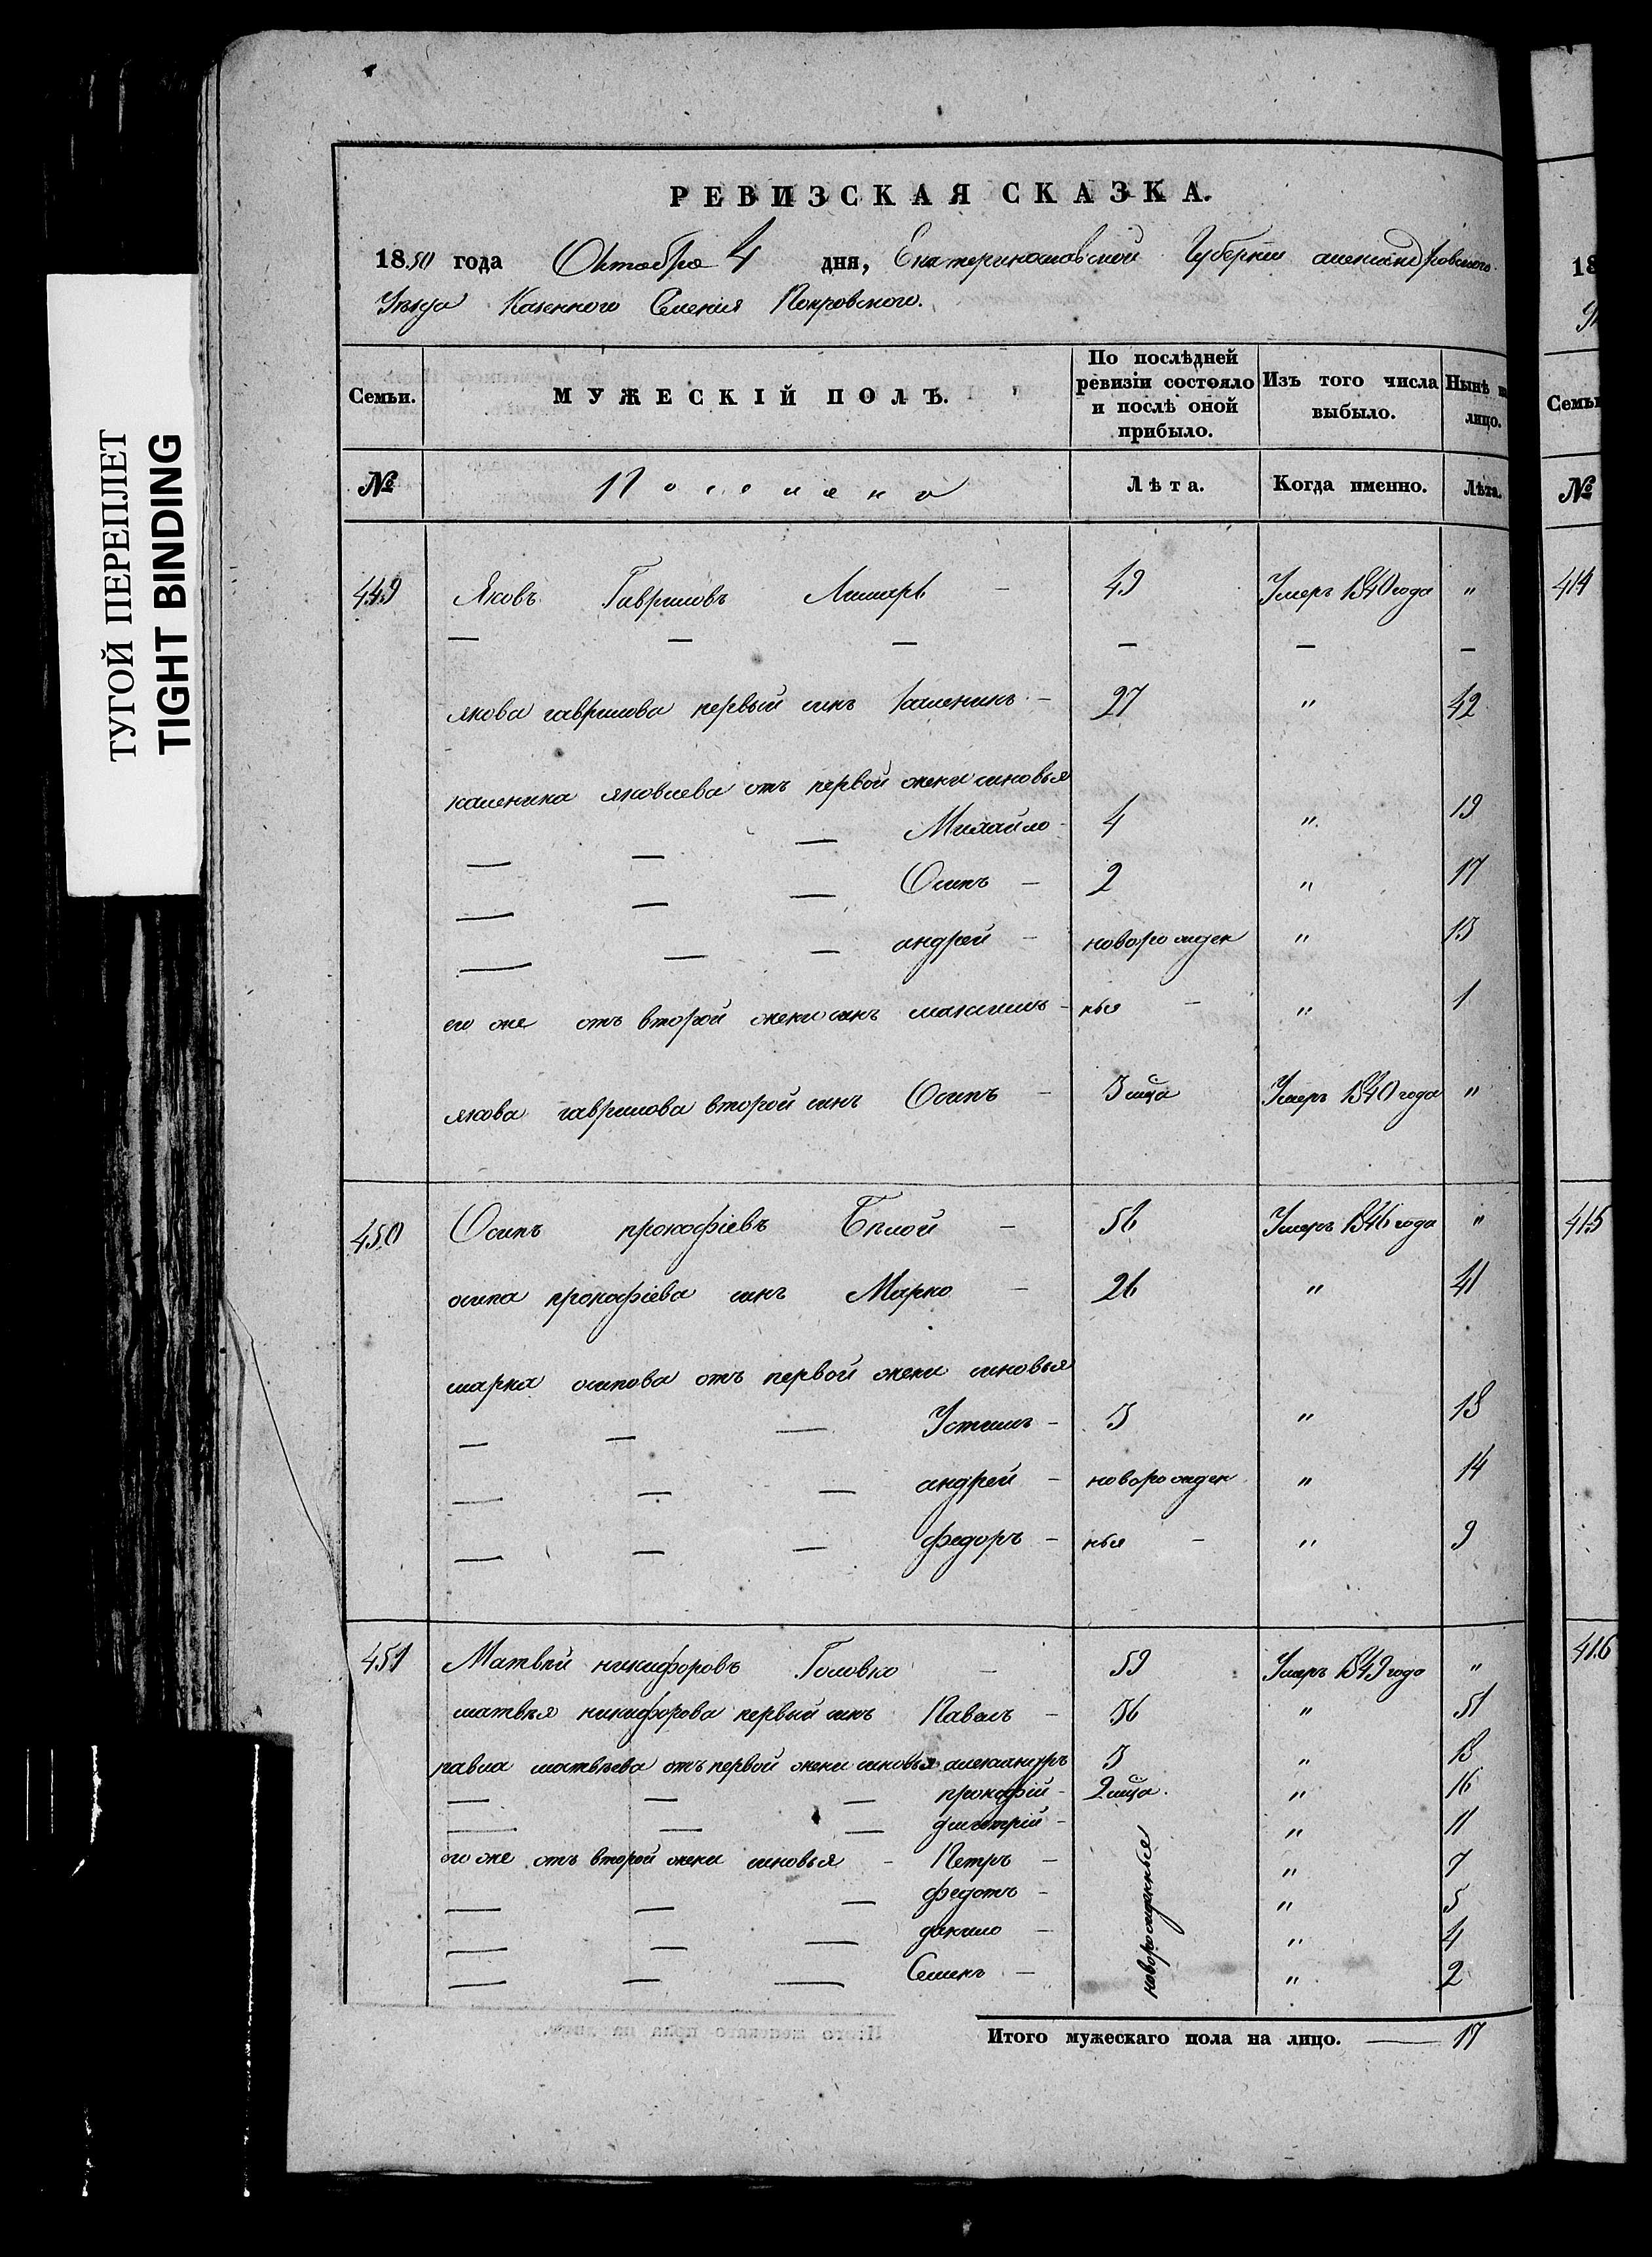 ТУГОЙ ПЕРЕПЛЕТ
TIGHT BINDING
РЕВИЗСКАЯ СКАЗКА.
1850 года Октября 4 дня, Екатеринославской Губернии александровского
Уѣзда Казенного Селения Покровского.
Семьи. МУЖЕСКІЙ ПОЛЪ. По послѣдней ревизіи состояло и послѣ оной прибыло. Изъ того числа выбыло. Нынѣ на лицо.
№ Поселяне Лѣта. Когда именно. Лѣта.
449 Яковъ Гавриловъ Лимарь — 49 Умеръ 1840 года "
— — — — — —
якова гаврилова первый синъ Каленикъ — 27 " 42
каленика яковлева отъ первой жени синовья
— — — Михайло — 4 " 19
— — — Осипъ — 2 " 17
— — — андрей — новорожден " 13
его же отъ второй жени синъ максимъ — ные — " 1
якова гаврилова второй синъ Осипъ — 3 мца Умеръ 1840 года "
450 Осипъ прокофіевъ Бѣлой — 56 Умеръ 1846 года "
осипа прокофіева синъ Марко — 26 " 41
марка осипова отъ первой жени синовья
— — — Устимъ — 3 " 18
— — — андрей — новорожден " 14
— — — федоръ — ные — " 9
451 Матвѣй никифоровъ Головко — 59 Умеръ 1849 года "
матвѣя никифорова первый синъ Павелъ — 36 " 51
павла матвѣева отъ первой жени синовья александръ 3 " 18
— — — прокофій — 2 мца. " 16
— — — дмитрій — новорожденные " 11
его же отъ второй жени синовья — Петръ — " 7
— — — федотъ — " 5
— — — данило — " 4
— — — Семенъ — " 2
Итого мужескаго пола на лицо. — 17
18
Семьи
№
414
415
416